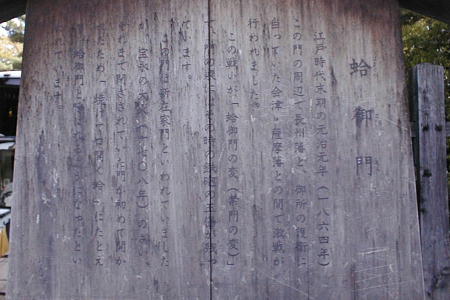 蛤御門
江戸時代末期の元治元年（一八六四年）
この門の周辺で長州藩と、御所の護衛に
当っていた会津・薩摩藩との間で激戦が
行われました。
この戦いが「蛤御門の変（禁門の変）」
で、門の
ています。
この門は新在家門といわれていました
が、宝永の（一七〇八年）の
それまで閉ざされていた門が初めて開か
れたため「焼けて口開く蛤」にたとえ
て「蛤御門」と呼ばれるようになったとい
われています。